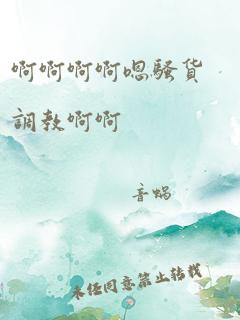 啊啊啊啊嗯骚货
調教啊啊
音蜗
未经同意禁止转载